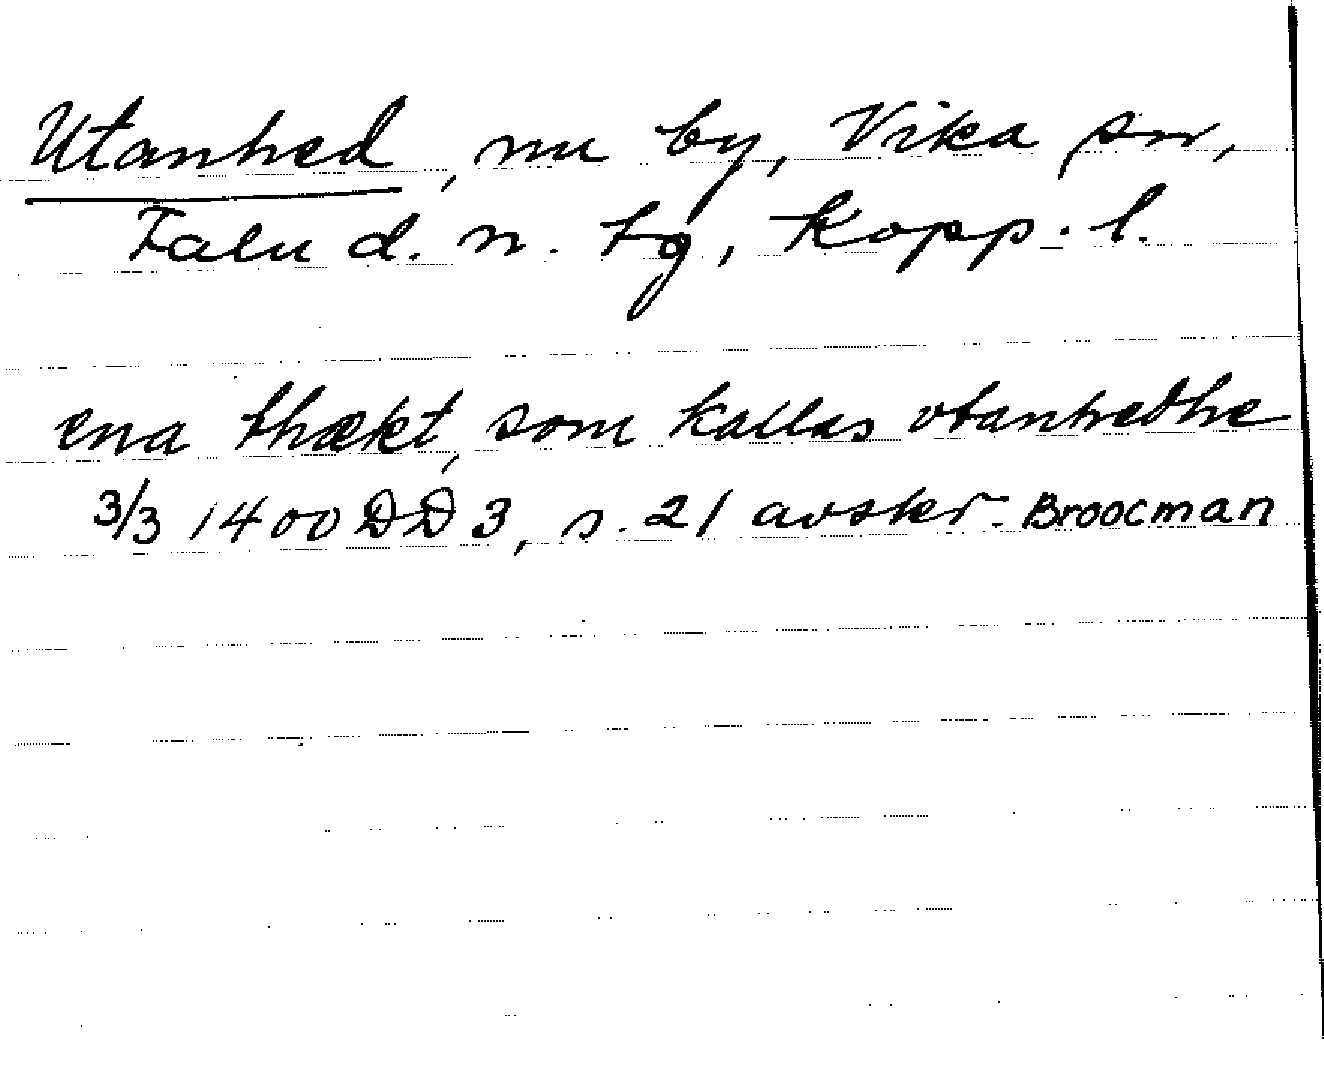 Utanhed, nu by, Vika sn,
Falu d. n. tg, Kopp. l.
ena thækt, som kallas vtanhedhe
3/3 1400 DD 3, s. 21 avskr. Broocman